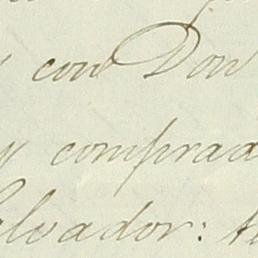 y con Don
y comprad
alvador: